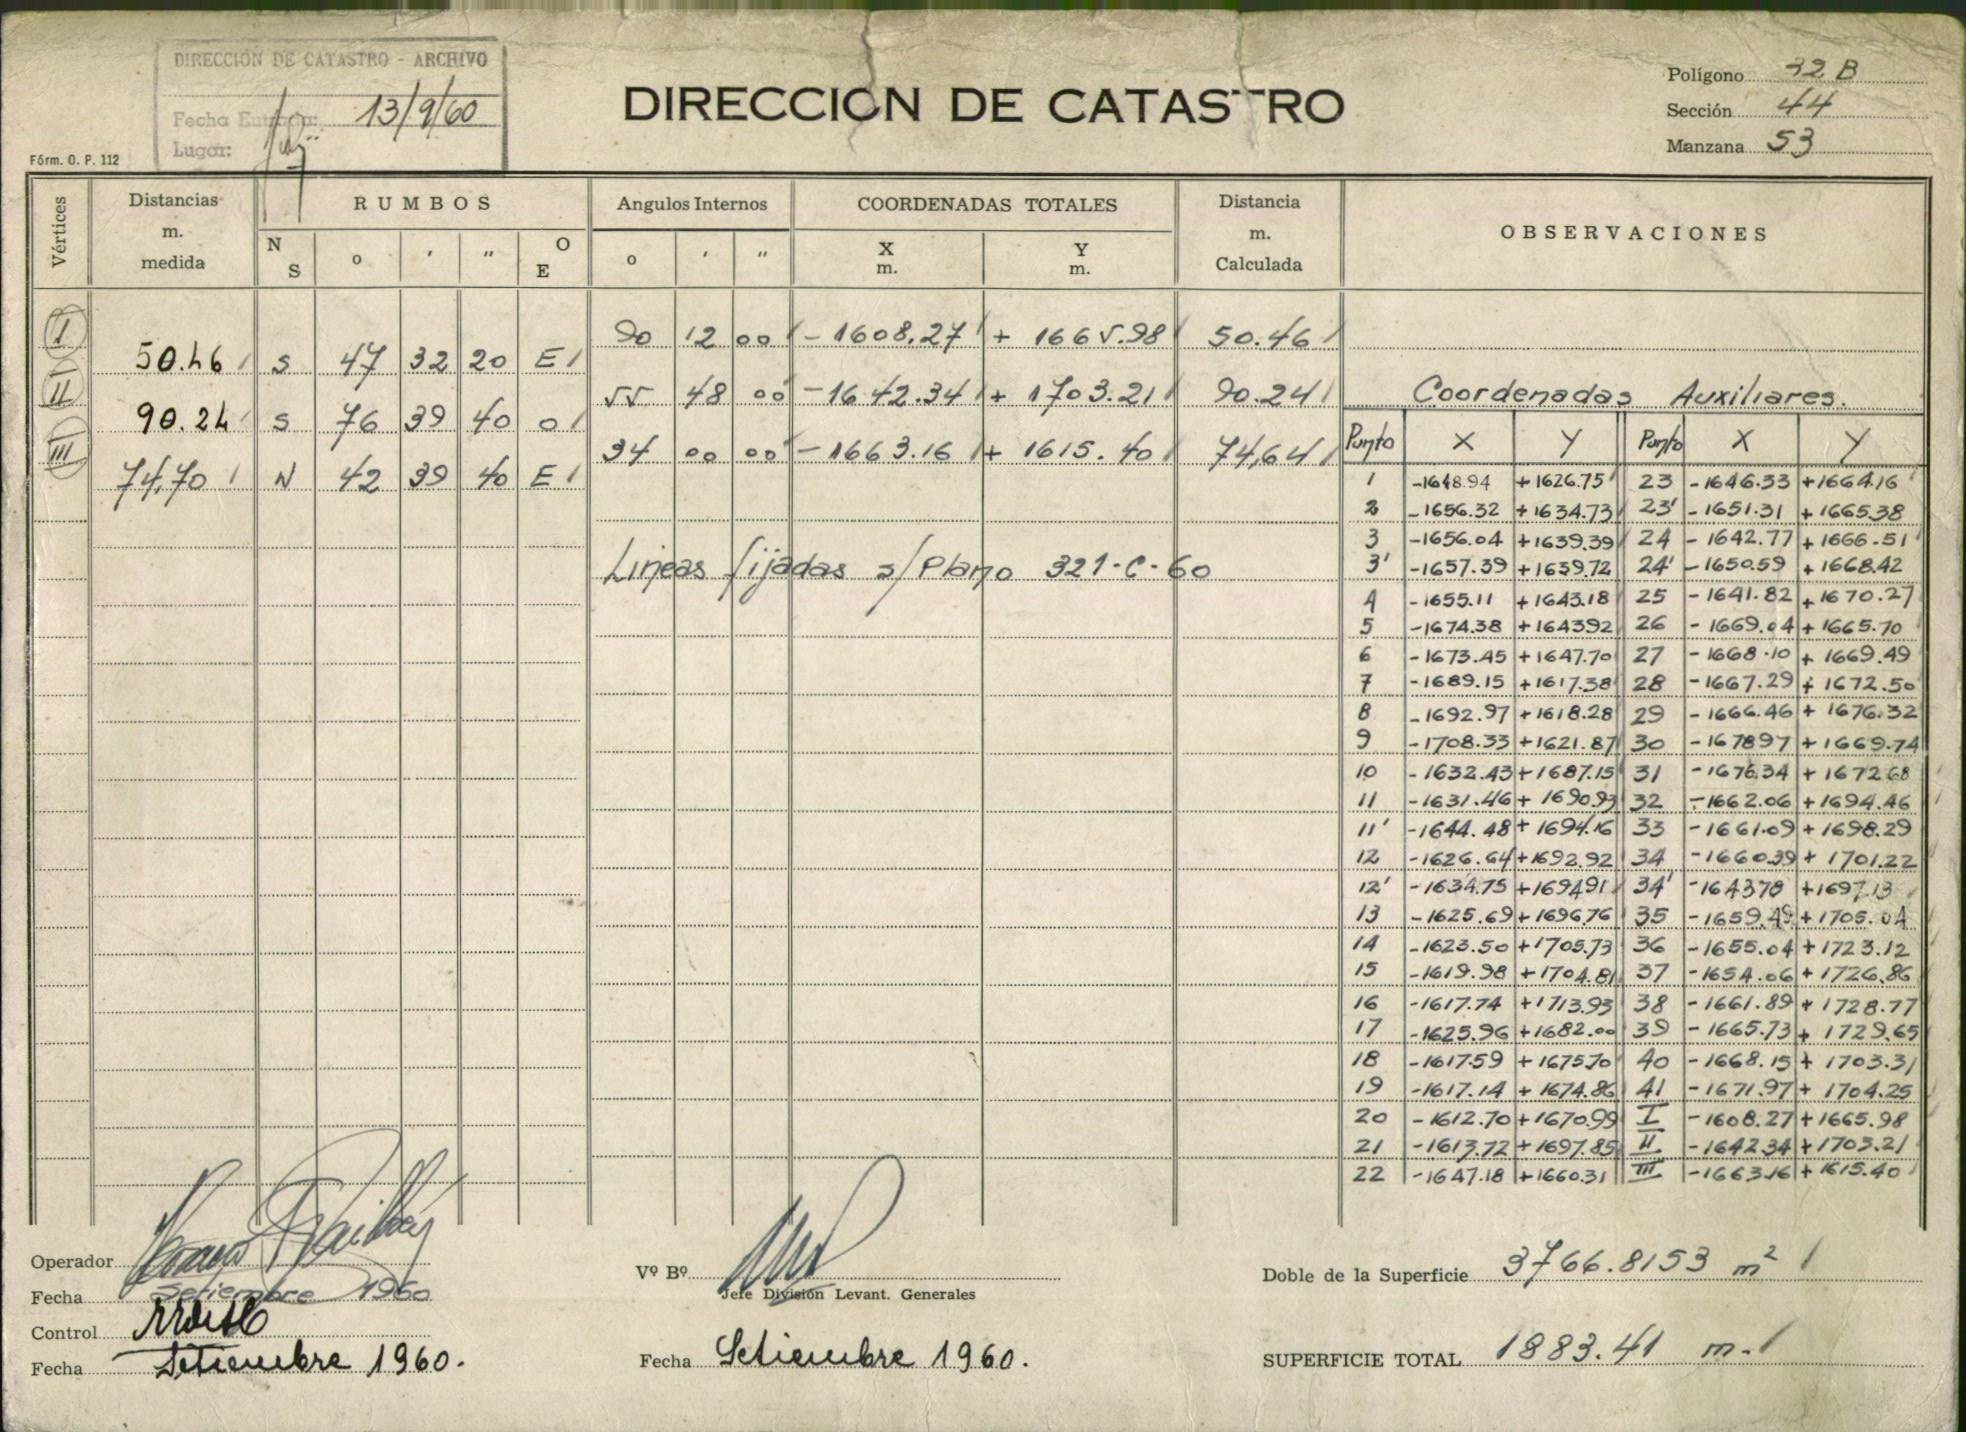 DIRECCION DE CATASTRO - ARCHIVO
Fecha Entrada: 13/9/60
Lugar:
Fórm. O. P. 112
DIRECCION DE CATASTRO
Polígono 32 B
Sección 44
Manzana 53
Vértices Distancias m. medida RUMBOS N S o ' " O E Angulos Internos o ' " COORDENADAS TOTALES X m. Y m. Distancia m. Calculada OBSERVACIONES
I 90 12 00 - 1608.27 + 1665.98 50.46
50.46 S 47 32 20 E
II 55 48 00 - 1642.34 + 1703.21 90.24
90.24 S 76 39 40 O
III 34 00 00 - 1663.16 + 1615.40 74,64
74,70 N 42 39 40 E
Lineas fijadas s/Plano 321-C-60
Coordenadas Auxiliares.
Punto X Y Punto X Y
1 -1648.94 +1626.75 23 -1646.33 +1664.16
2 -1656.32 +1634.73 23' -1651.31 +1665.38
3 -1656.04 +1639.39 24 -1642.77 +1666.51
3' -1657.39 +1639.72 24' -1650.59 +1668.42
4 -1655.11 +1643.18 25 -1641.82 +1670.27
5 -1674.38 +164392 26 -1669.04 +1665.70
6 -1673.45 +1647.70 27 -1668.10 +1669.49
7 -1689.15 +1617.38 28 -1667.29 +1672.50
8 -1692.97 +1618.28 29 -1666.46 +1676.32
9 -1708.33 +1621.87 30 -167897 +1669.74
10 -1632.43 +1687.15 31 -1676.34 +167268
11 -1631.46 +1690.93 32 -1662.06 +1694.46
11' -1644.48 +1694.16 33 -1661.09 +1698.29
12 -1626.64 +1692.92 34 -166039 +1701.22
12' -1634.75 +169491 34' -164378 +1697.13
13 -1625.69 +1696.76 35 -1659.49 +1705.04
14 -1623.50 +1705.73 36 -1655.04 +1723.12
15 -1619.98 +1704.81 37 -1654.06 +1726.86
16 -1617.74 +1713.93 38 -1661.89 +1728.77
17 -1625.96 +1682.00 39 -1665.73 +1729.65
18 -161759 +1675.70 40 -1668.15 +1703.31
19 -1617.14 +1674.86 41 -1671.97 +1704.25
20 -1612.70 +1670.99 I -1608.27 +1665.98
21 -1613.72 +1697.85 II -164234 +1703.21
22 -1647.18 +1660.31 III -1663.16 +1615.40
Operador
Fecha Setiembre 1960
Control
Fecha Setiembre 1960.
Vº Bº
Jefe División Levant. Generales
Fecha Setiembre 1960.
Doble de la Superficie 3766.8153 m²
SUPERFICIE TOTAL 1883.41 m.